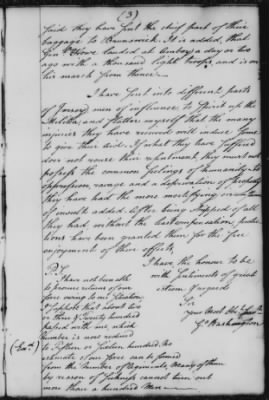 (3)
said they have sent the chief part of their
baggage to Brunswick. It is added, that
Genl. Howe landed at Amboy a day or two
ago with a thousand light Troops, and is on
his march from thence.
I have sent into different parts
of Jersey, men of influence to spirit up the
Militia, and flatter myself that the many
injuries they have received will induce some
to give their aid. If what they have suffered
does not rouse their resentment, they must not
possess the common feelings of humanity. to
oppression, ravage and a deprivation of property
they have had the more mortifying
of insult added. After being stripped of all
they had without the least compensation, protec
tions have been granted them for the free
enjoyment of their effects.
I have the honour to be
with sentiments of great
esteem & regards
Sir
your Most Obt Servt
Go Washington
P.S.
I have not been able
to procure returns of our
force owing to our situation,
I suppose that about two
or three & Twenty hundred
passed with me, which
number is now reduced
to fifteen or Sixteen hundred. No
estimate of our force can be formed
from the number of Regiments, Many of them
by reason of Sickness cannot turn out
more than a hundred Men